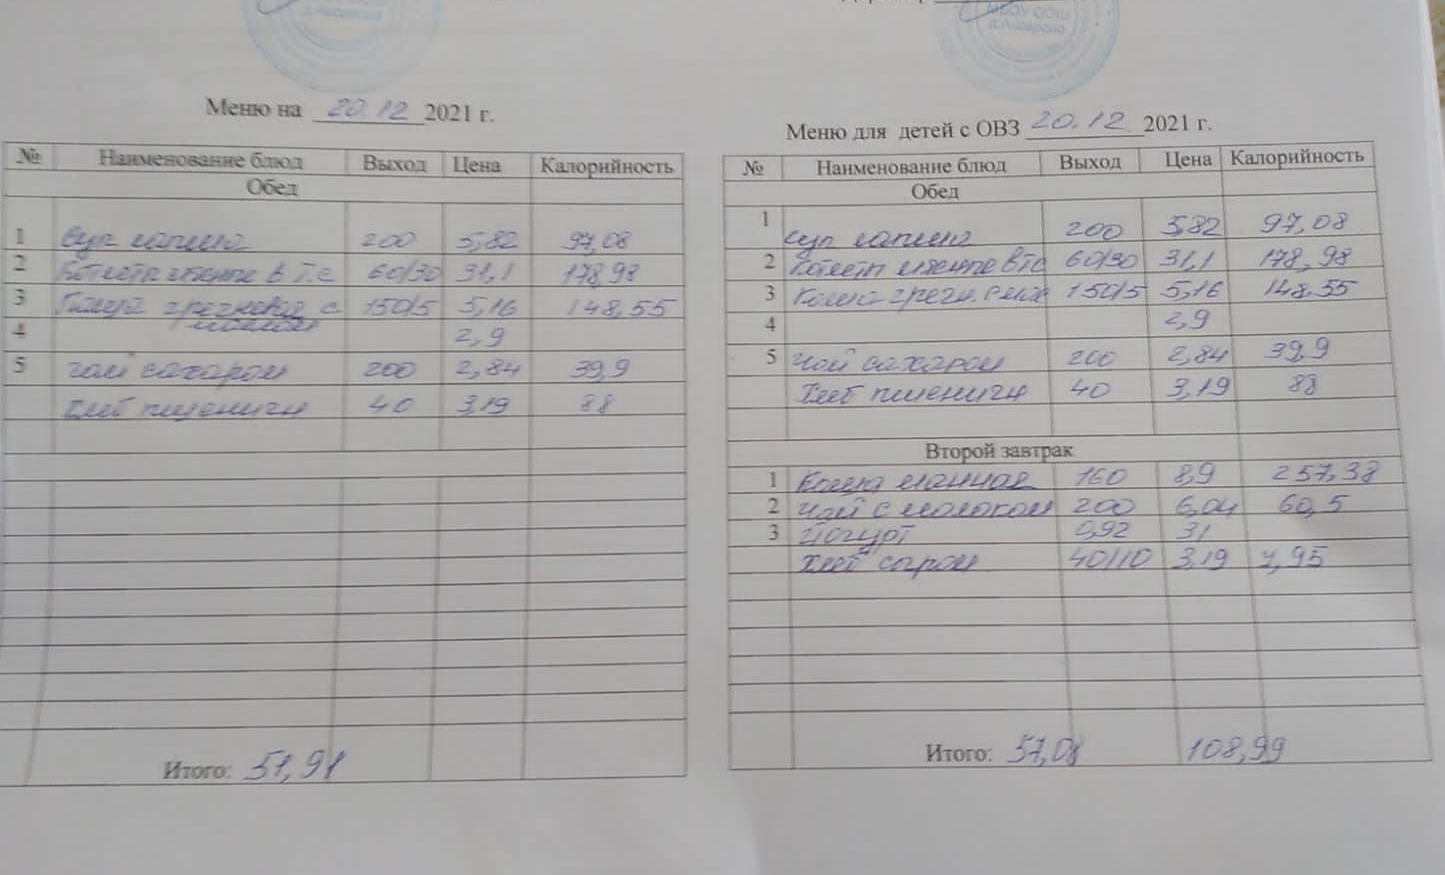 МБОУ ООШ
Меню на 20.12 2021 г.
№ Наименование блюд Выход Цена Калорийность
Обед
1 Суп лапша 200 5,82 97,08
2 Котлета в Т.С 60/30 31,1 178,98
3 Каша гречневая с 150/5 5,16 148,55
маслом
4 2,9
5 Чай сахаром 200 2,84 39,9
Хлеб пшеничн 40 3,19 88
Итого: 51,91
Меню для детей с ОВЗ 20.12 2021 г.
№ Наименование блюд Выход Цена Калорийность
Обед
1 Суп лапша 200 5,82 97,08
2 Котлета 60/30 31,1 178,98
3 Каша гречн. с мас 150/5 5,16 148.55
4 2,9
5 Чай сахаром 200 2,84 39,9
Хлеб пшеничн 40 3,19 88
Второй завтрак
1 Каша манная 160 8,9 257,38
2 Чай с молоком 200 6,04 60,5
3 Йогурт 0,92 31
Хлеб сыром 40/10 3,19 7,95
Итого: 57,08 108,99